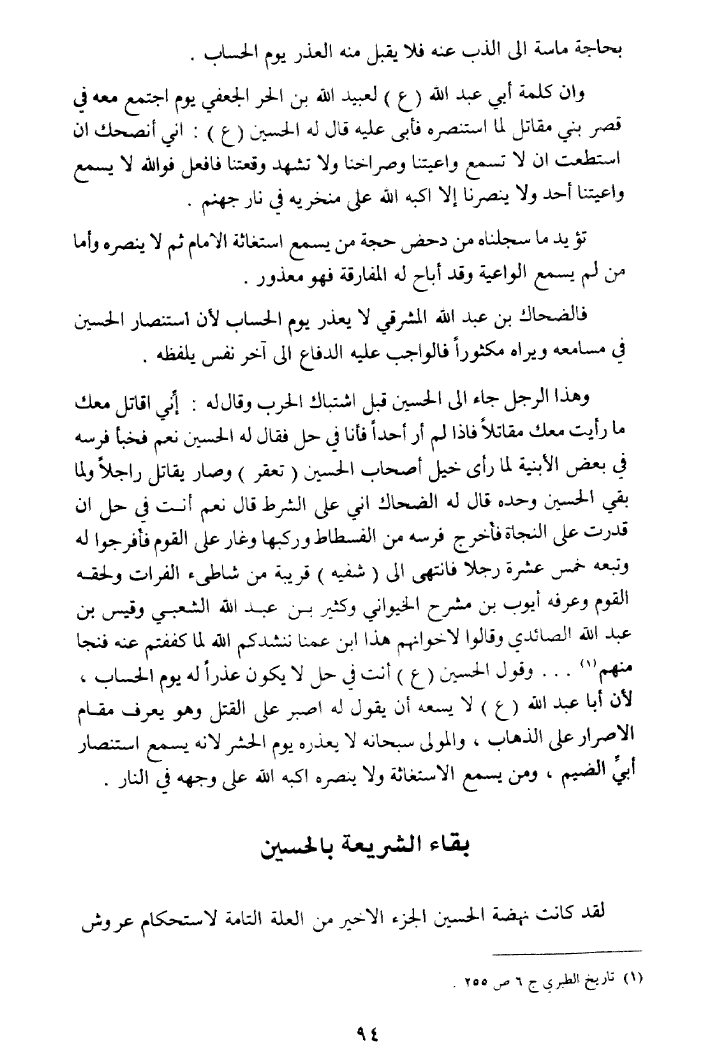 بحاجة ماسة الى الذب عنه فلا يقبل منه العذر يوم الحساب .
وان كلمة أبي عبد الله ( ع ) لعبيد الله بن الحر الجعفي يوم اجتمع معه في
قصر بني مقاتل لما استنصره فأبى عليه قال له الحسين ( ع ) : اني أنصحك ان
استطعت ان لا تسمع واعيتنا وصراخنا ولا تشهد وقعتنا فافعل فوالله لا يسمع
واعيتنا أحد ولا ينصرنا إلا اكبه الله على منخريه في نار جهنم .
تؤيد ما سجلناه من دحض حجة من يسمع استغاثة الامام ثم لا ينصره وأما
من لم يسمع الواعية وقد أباح له المفارقة فهو معذور .
فالضحاك بن عبد الله المشرقي لا يعذر يوم الحساب لأن استنصار الحسين
في مسامعه ويراه مكثوراً فالواجب عليه الدفاع الى آخر نفس يلفظه .
وهذا الرجل جاء الى الحسين قبل اشتباك الحرب وقال له : إني اقاتل معك
ما رأيت معك مقاتلاً فاذا لم أر أحداً فأنا في حل فقال له الحسين نعم فخبأ فرسه
في بعض الأبنية لما رأى خيل أصحاب الحسين ( تعقر ) وصار يقاتل راجلاً ولما
بقي الحسين وحده قال له الضحاك اني على الشرط قال نعم أنت في حل ان
قدرت على النجاة فأخرج فرسه من الفسطاط وركبها وغار على القوم فأفرجوا له
وتبعه خمس عشرة رجلا فانتهى الى ( شفيه ) قريبة من شاطىء الفرات ولحقه
القوم وعرفه أيوب بن مشرح الخيواني وكثير بن عبد الله الشعبي وقيس بن
عبد الله الصائدي وقالوا لاخوانهم هذا ابن عمنا ننشدكم الله لما كففتم عنه فنجا
منهم(١) ... وقول الحسين ( ع ) أنت في حل لا يكون عذراً له يوم الحساب ،
لأن أبا عبد الله ( ع ) لا يسعه أن يقول له اصبر على القتل وهو يعرف مقام
الاصرار على الذهاب ، والمولى سبحانه لا يعذره يوم الحشر لانه يسمع استنصار
أبيِّ الضيم ، ومن يسمع الاستغاثة ولا ينصره اكبه الله على وجهه في النار .
بقاء الشريعة بالحسين
لقد كانت نهضة الحسين الجزء الاخير من العلة التامة لاستحكام عروش
(١) تاريخ الطبري ج ٦ ص ٢٥٥ .
٩٤